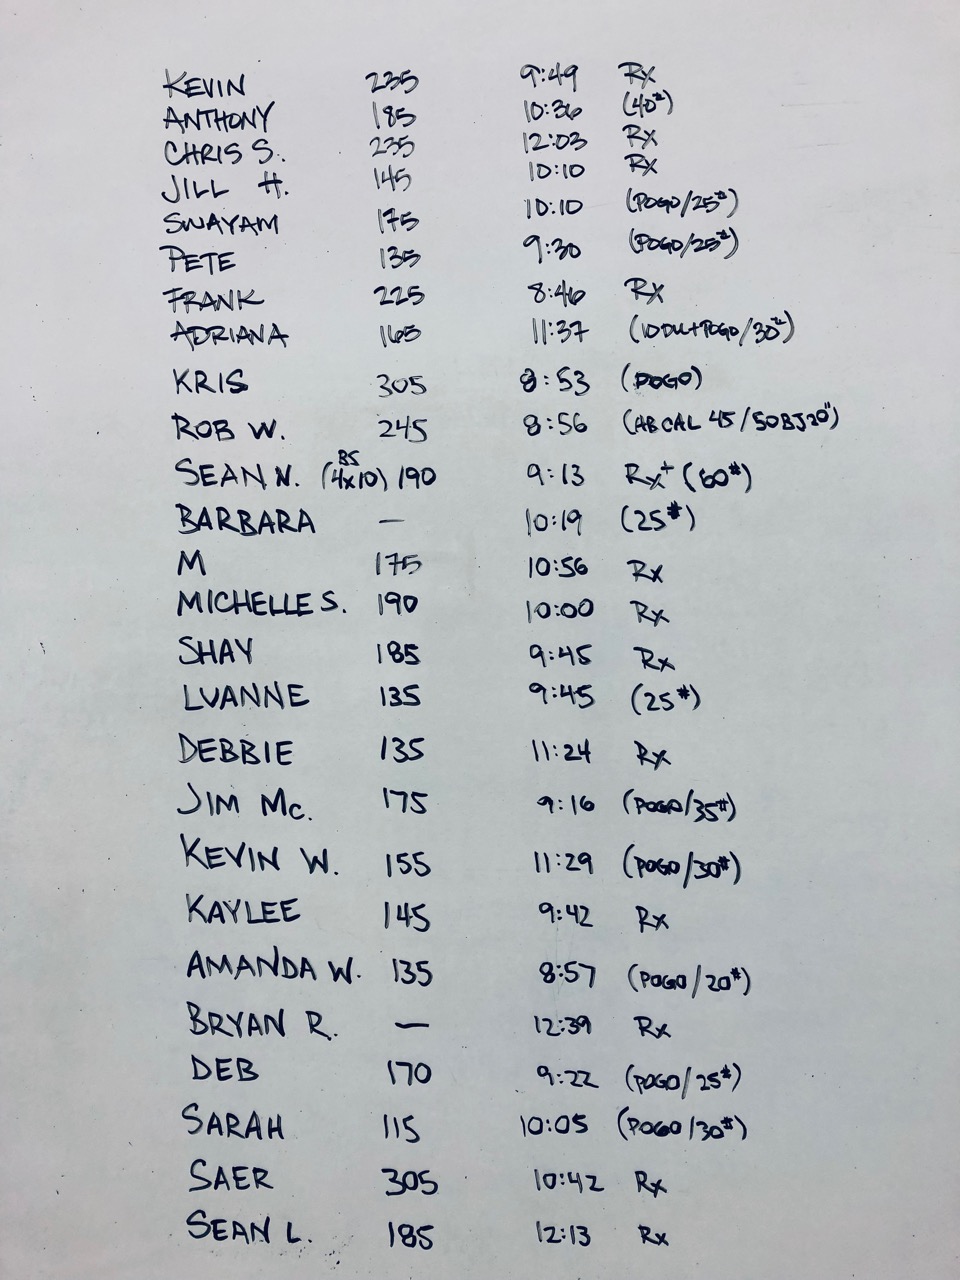 KEVIN 235 9:49 Rx
ANTHONY 185 10:36 (40#)
CHRIS S. 235 12:03 Rx
JILL H. 145 10:10 Rx
SWAYAM 175 10:10 (POGO/25#)
PETE 135 9:30 (POGO/25#)
FRANK 225 8:46 Rx
ADRIANA 165 11:37 (10DU+POGO/30#)
KRIS 305 8:53 (POGO)
ROB W. 245 8:56 (AB CAL 45/50BJ20")
SEAN N. BS (4x10) 190 9:13 Rx+ (60#)
BARBARA — 10:19 (25#)
M 175 10:56 Rx
MICHELLE S. 190 10:00 Rx
SHAY 185 9:45 Rx
LUANNE 135 9:45 (25#)
DEBBIE 135 11:24 Rx
JIM Mc. 175 9:16 (POGO/35#)
KEVIN W. 155 11:29 (POGO/30#)
KAYLEE 145 9:42 Rx
AMANDA W. 135 8:57 (POGO/20#)
BRYAN R. — 12:39 Rx
DEB 170 9:22 (POGO/25#)
SARAH 115 10:05 (POGO/30#)
SAER 305 10:42 Rx
SEAN L. 185 12:13 Rx